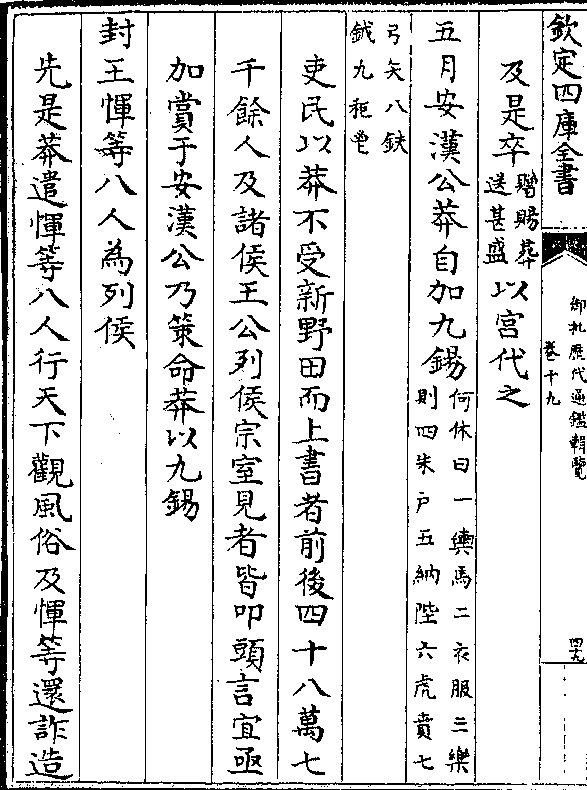 欽定四庫全書
御批歷代通鑑輯覽
卷十九
及是卒贈賜葬送甚盛以宮代之
五月安漢公莽自加九錫何休曰一輿馬二衣服三樂則四朱戶五納陛六虎賁七
弓矢八鈇鉞九秬鬯
吏民以莽不受新野田而上書者前後四十八萬七
千餘人及諸侯王公列侯宗室見者皆叩頭言宜亟
加賞于安漢公乃策命莽以九錫
封王惲等八人為列侯
先是莽遣惲等八人行天下觀風俗及惲等還詐造